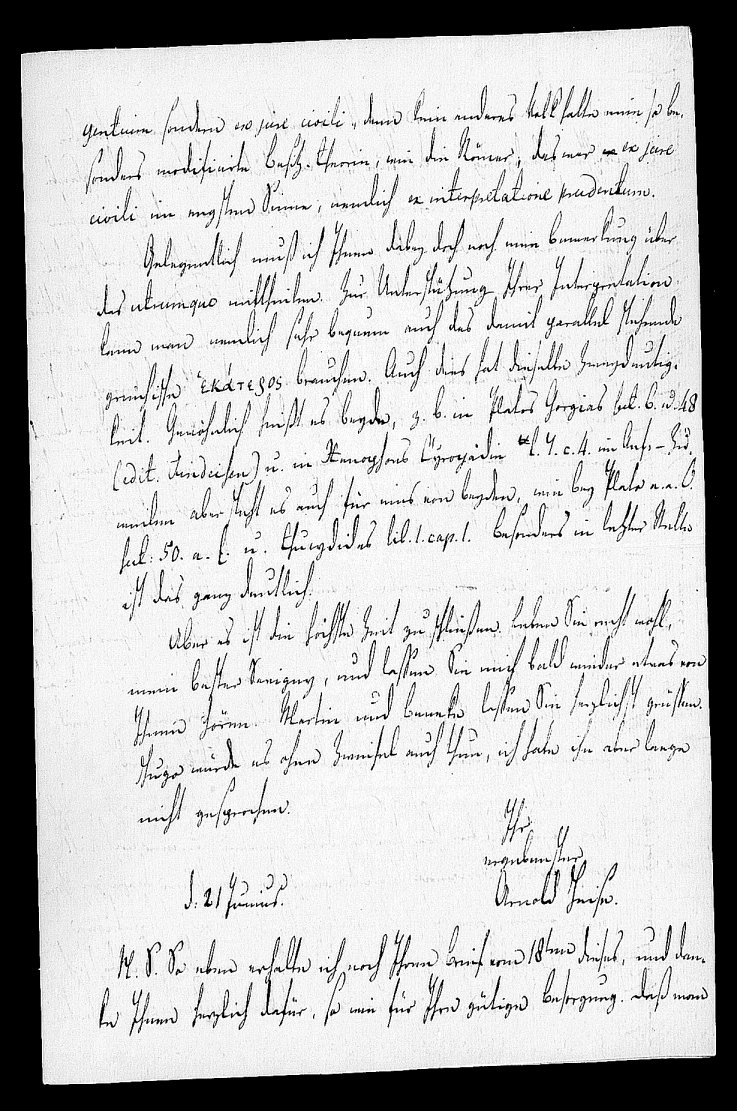 gentium sondern ex jure civili, denn kein anderes Volk hatte eine so be-
sonders modificirte Besitz-Theorie, wie die Römer, das war ex jure
civili im engsten Sinne, nemlich ex interpretatione prudentum.
Gelegentlich muß ich Ihnen dabey doch noch eine Bemerkung über
das utrumque mittheilen. Zur Unterstützung Ihrer Interpretation
kann man nemlich sehr bequem auch das damit parallel stehende
griechische ἑκάτερος brauchen. Auch dies hat dieselbe Zweydeutig-
keit. Gewöhnlich heißt es beyde, z. b. in Platos Gorgias sect. 6. u. 48
(edit. Findeisen) u. in Xenophons Cyropädie l. 4. c. 4. im Anf. – Zu-
weilen aber steht es auch für eins von beyden, wie bey Plato a. a. O.
sect. 50. a. E. u. Thucydides lib. 1. cap. 1. besonders in letzter Stelle
ist das ganz deutlich.
Aber es ist die höchste Zeit zu schließen. Leben Sie recht wohl,
mein bester Savigny, und lassen Sie mich bald wieder etwas von
Ihnen hören. Martin und Benecke lassen Sie herzlichst grüssen.
Hugo würde es ohne Zweifel auch thun, ich habe ihn aber lange
nicht gesprochen.
Ihr
ergebenster
d. 21 Junius. Arnold Heise.
N. S. So eben erhalte ich noch Ihren Brief vom 18ten dieses, und dan-
ke Ihnen herzlich dafür, so wie für Ihre gütige Besorgung. Daß man